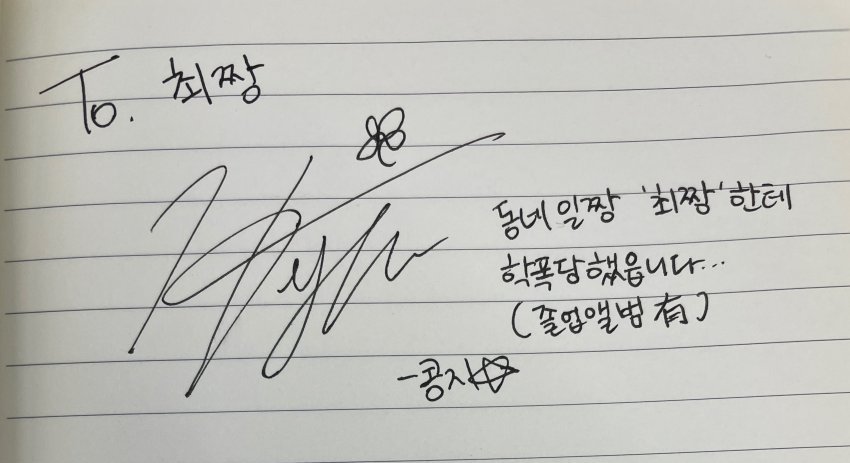 To. 최짱
동네 일짱 '최짱' 한테
학폭당했읍니다...
(졸업앨범 有)
-콩지☆